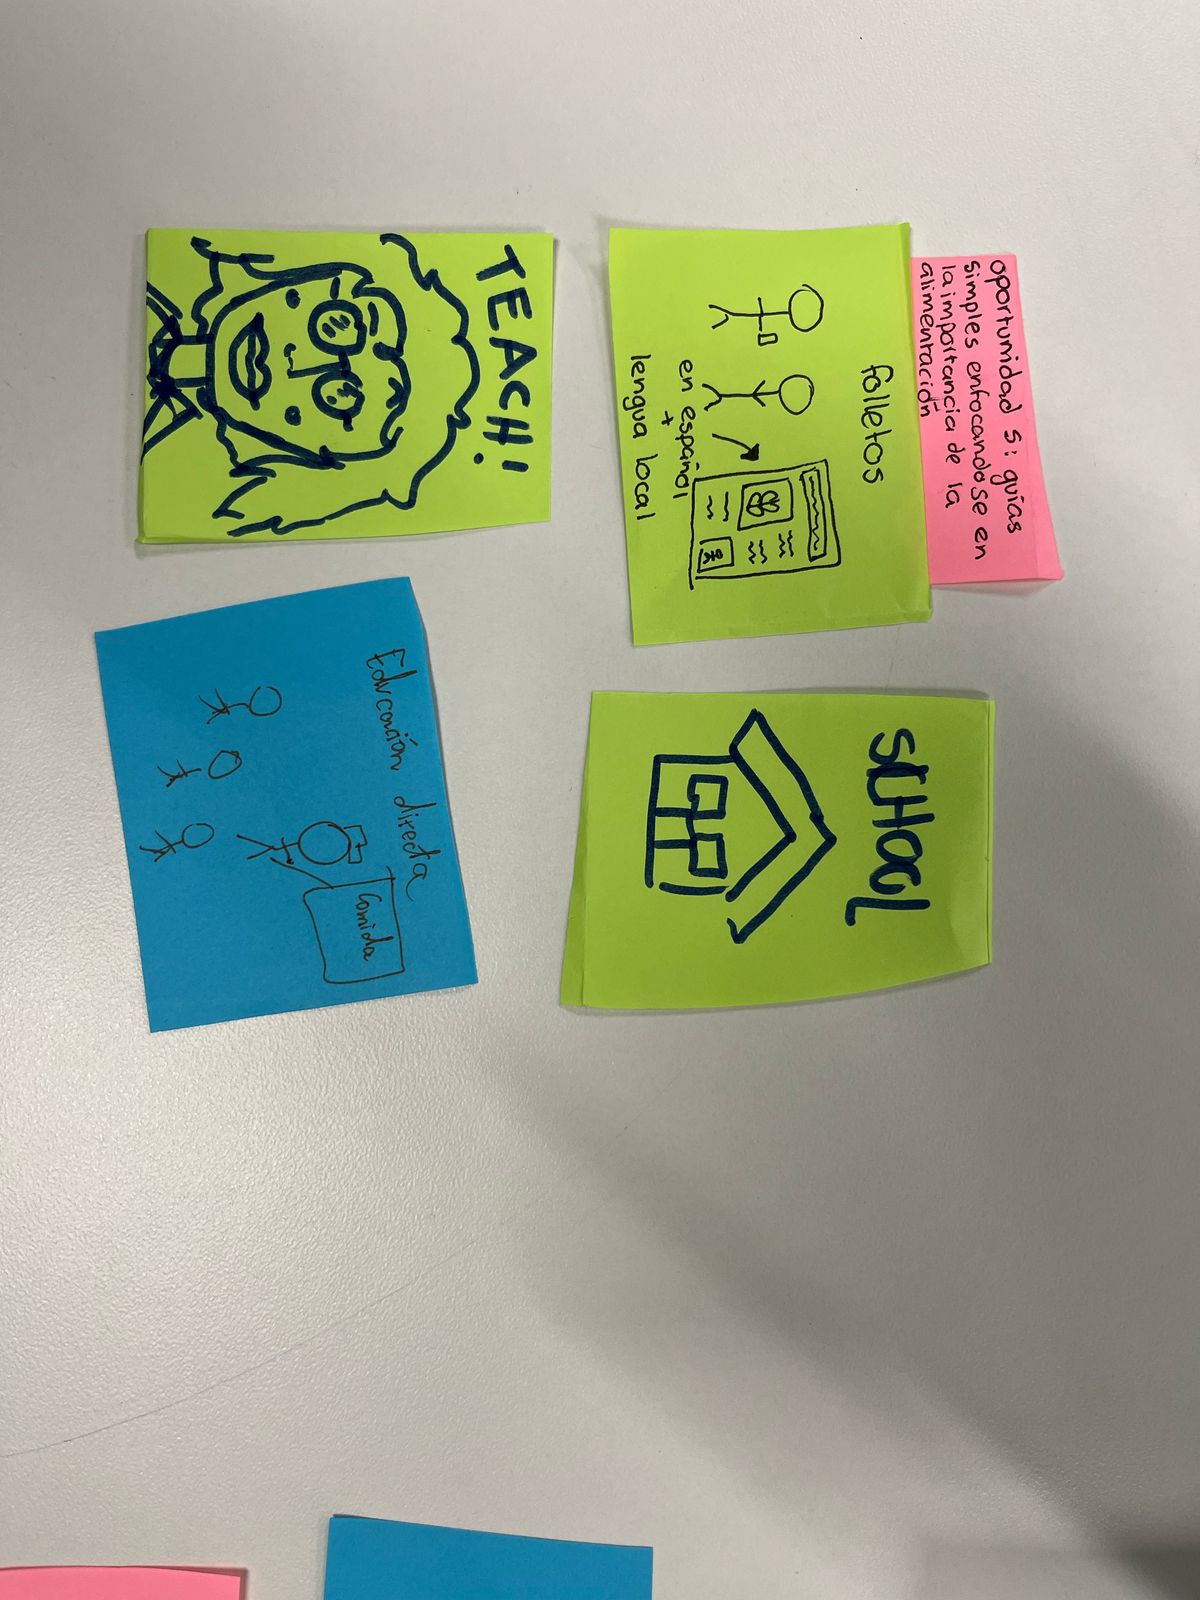 oportunidad 5: guías
simples enfocandose en
la importancia de la
alimentación
folletos
en español
+
lengua local
SCHOOL
TEACH!
Educación directa
Comida